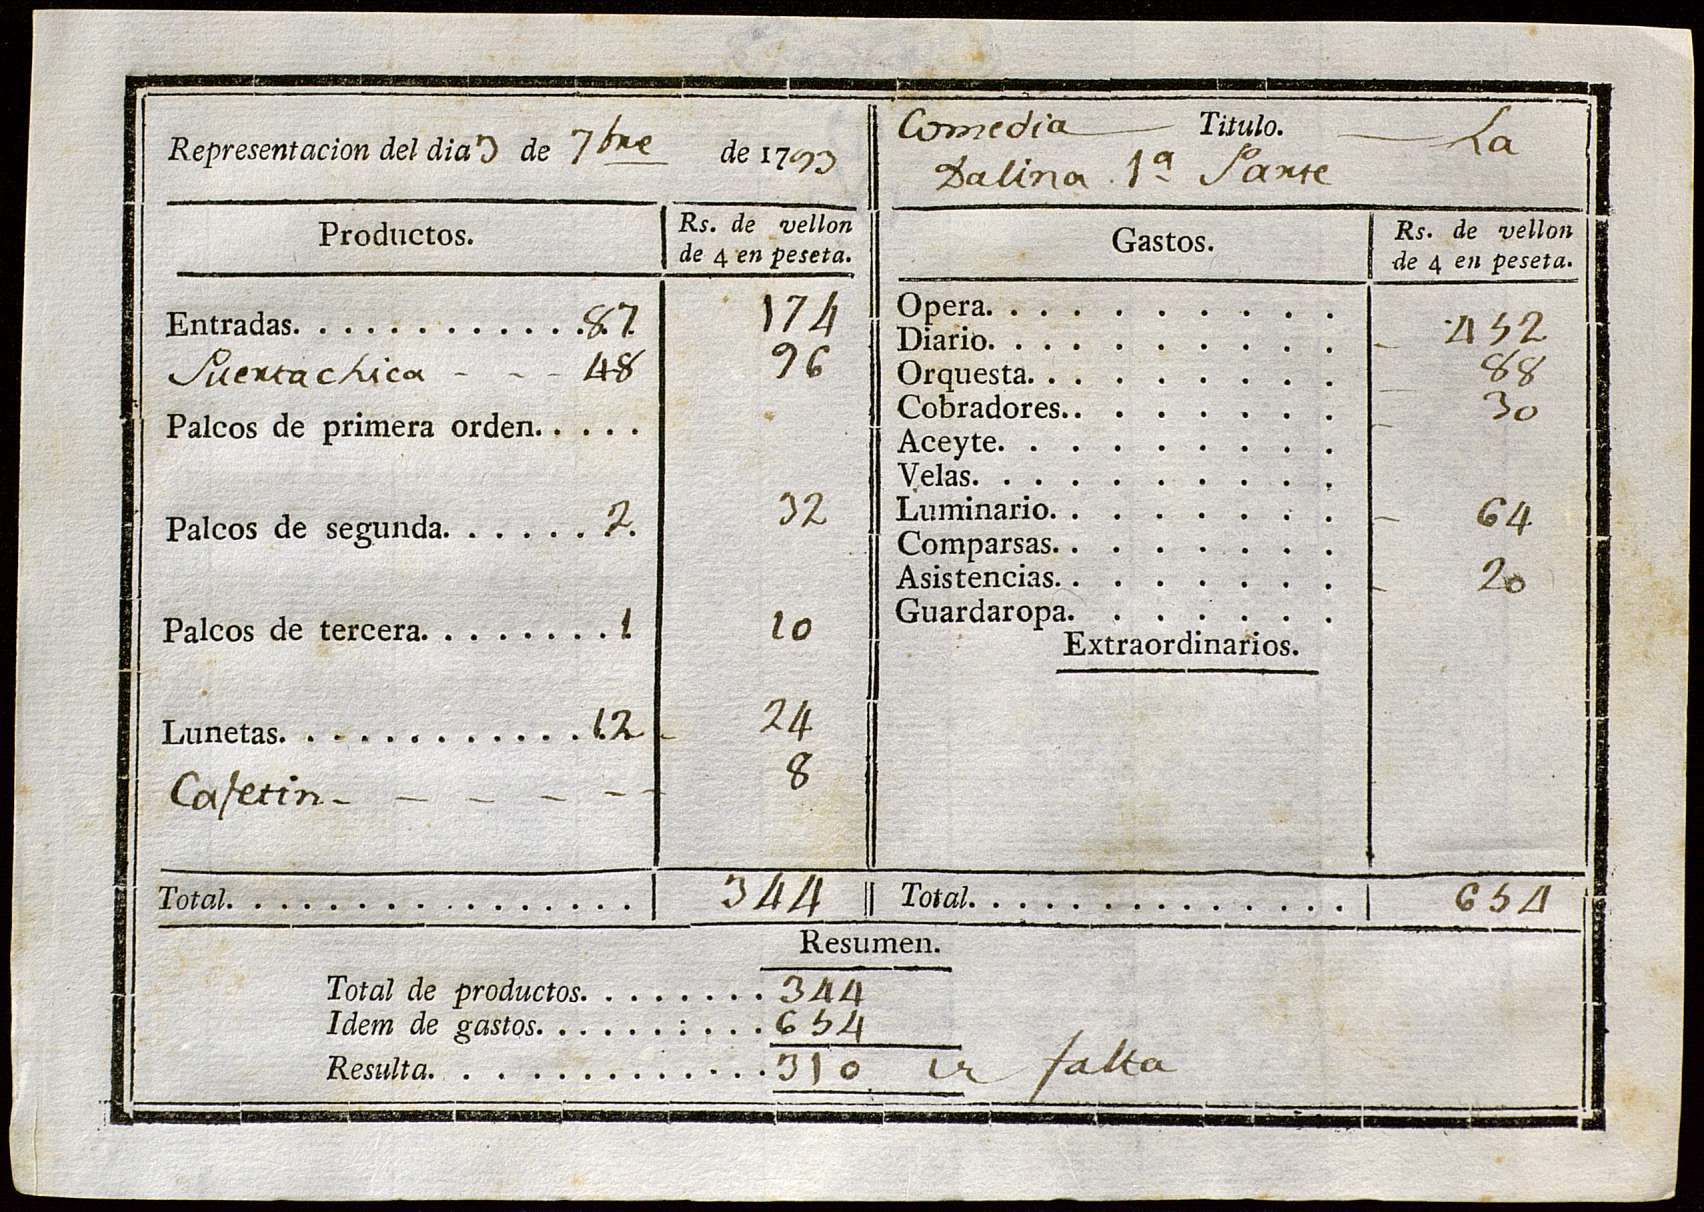 Representacion del dia 3 de 7bre de 1793
Comedia Titulo. La
Dalina 1ª Parte
Productos. Rs. de vellon
de 4 en peseta.
Entradas. 87 174
Puerta chica 48 96
Palcos de primera orden.
Palcos de segunda. 2 32
Palcos de tercera. 1 10
Lunetas. 12 24
Cafetin 8
Total. 344
Gastos. Rs. de vellon
de 4 en peseta.
Opera.
Diario. 452
Orquesta. 88
Cobradores. 30
Aceyte.
Velas.
Luminario. 64
Comparsas.
Asistencias. 20
Guardaropa.
Extraordinarios.
Total. 654
Resumen.
Total de productos. 344
Idem de gastos. 654
Resulta. 310 falta